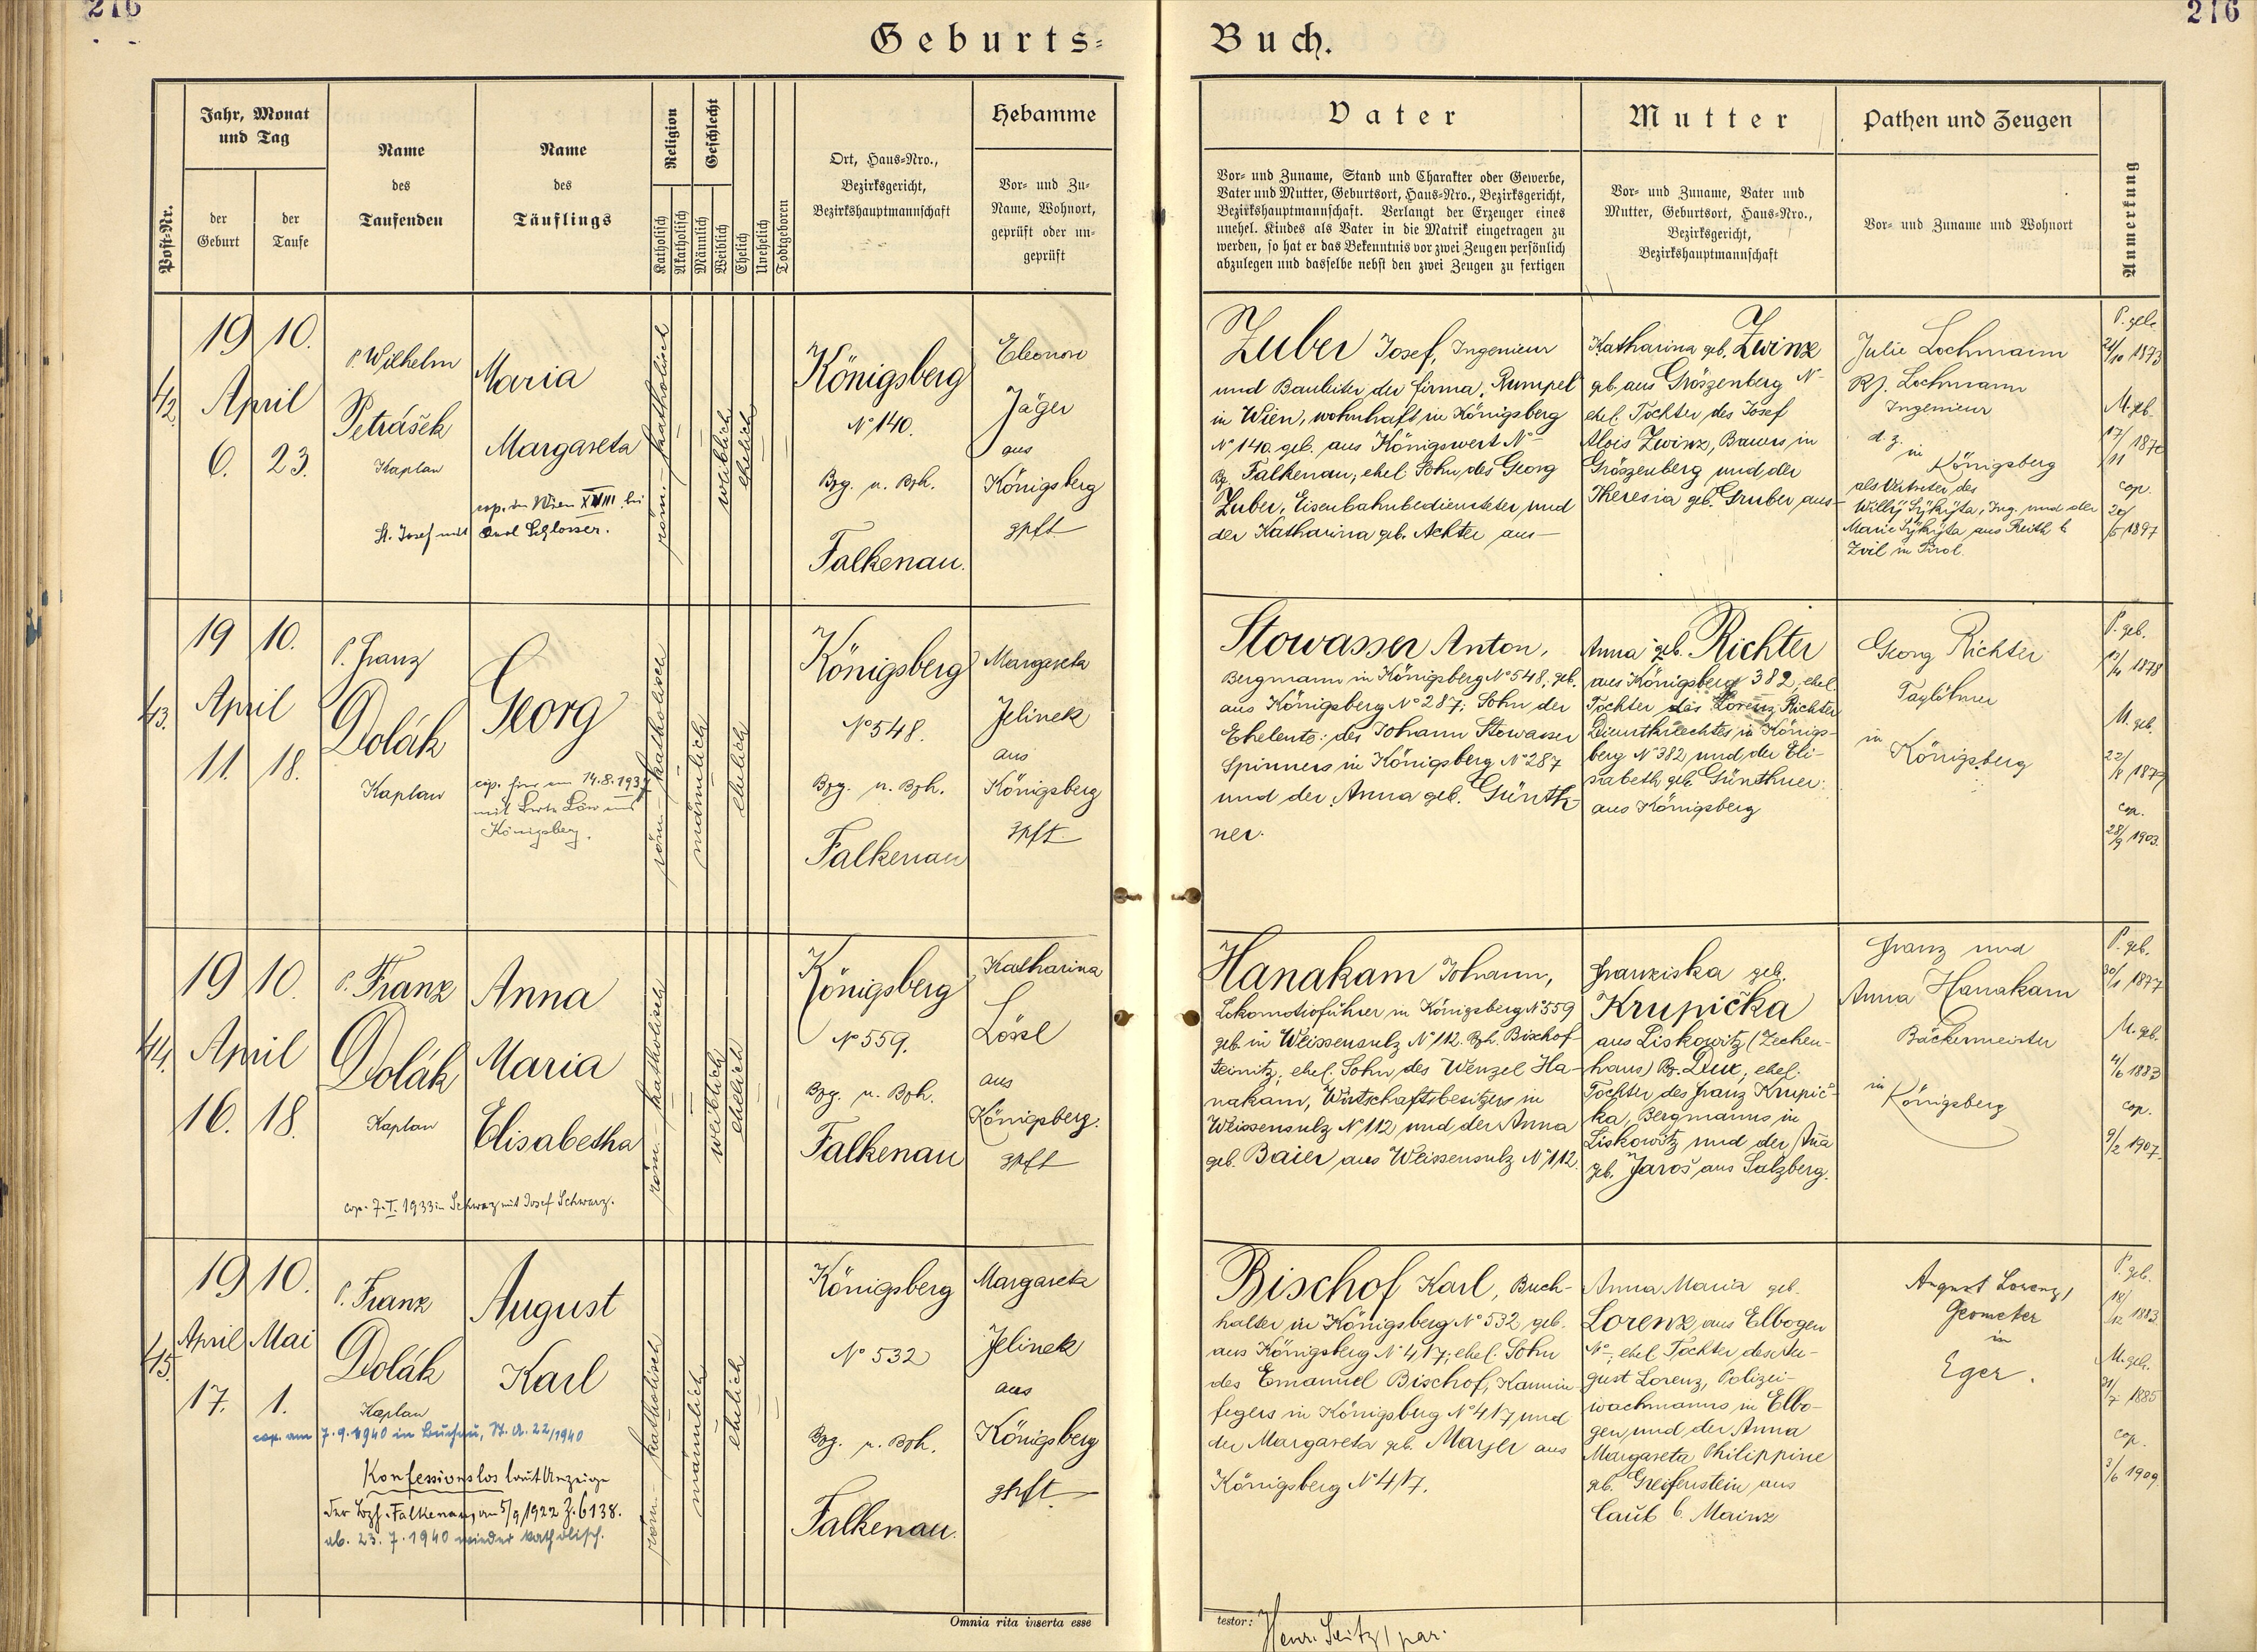 216
216
Geburts-
Buch.
Post-Nr.
Jahr, Monat
und Tag
der
Geburt
der
Taufe
Name
des
Taufenden
Name
des
Täuflings
Religion
Katholisch
Akatholisch
Geschlecht
Männlich
Weiblich
Ehelich
Unehelich
Todtgeboren
Ort, Haus-Nro.,
Bezirksgericht,
Bezirkshauptmannschaft
Hebamme
Vor- und Zu-
Name, Wohnort,
geprüft oder un-
geprüft
Vater
Vor- und Zuname, Stand und Charakter oder Gewerbe,
Vater und Mutter, Geburtsort, Haus-Nro., Bezirksgericht,
Bezirkshauptmannschaft. Verlangt der Erzeuger eines
unehel. Kindes als Vater in die Matrik eingetragen zu
werden, so hat er das Bekenntnis vor zwei Zeugen persönlich
abzulegen und dasselbe nebst den zwei Zeugen zu fertigen
Mutter
Vor- und Zuname, Vater und
Mutter, Geburtsort, Haus-Nro.,
Bezirksgericht,
Bezirkshauptmannschaft
Pathen und Zeugen
Vor- und Zuname und Wohnort
Anmerkung
42.
1910.
April
6. 23.
P. Wilhelm
Petrášek
Kaplan
Maria
Margareta
cop. in Wien XVIII. bei
St. Josef mit Karl Schlosser.
röm.-katholisch
weiblich
ehelich
Königsberg
N° 140.
Bzg. u. Bzh.
Falkenau.
Eleonore
Jäger
aus
Königsberg
gpft
Zuber Josef, Ingenieur
und Bauleiter der Firma Rumpel
in Wien, wohnhaft in Königsberg
N° 140. geb. aus Königswert N° –
Bz. Falkenau, ehel. Sohn des Georg
Zuber, Eisenbahnbediensteter und
der Katharina geb. Achter aus –
Katharina geb. Zwinz
geb. aus Gröszenberg N° –
ehel. Tochter des Josef
Alois Zwinz, Bauers in
Gröszenberg und der
Theresia geb. Gruber aus –
Julie Lochmann
Lochmann
Ingenieur
d. z. in
Königsberg
als Vertreter des
Willy Sýkýta, Ing. und der
Marie Sýkýta aus Reith b.
in Tirol.
P. geb.
21/10 1873
M. geb.
17/11 1870
cop.
20/5 1897
43.
1910.
April
11. 18.
P. Franz
Dolák
Kaplan
Georg
cop. hier am 14.8.1937
mit Berta Löw aus
Königsberg.
röm.-katholisch
männlich
ehelich
Königsberg
N° 548.
Bzg. u. Bzh.
Falkenau
Margareta
Jelinek
aus
Königsberg
gpft
Stowasser Anton,
Bergmann in Königsberg N° 548, geb.
aus Königsberg N° 287; Sohn der
Eheleute: des Johann Stowasser
Spinners in Königsberg N° 287
und der Anna geb. Günth-
ner.
Anna geb. Richter
aus Königsberg 382, ehel.
Tochter des Lorenz Richter
Dienstknechtes in Königs-
berg N° 382 und der Eli-
sabeth geb. Günthner
aus Königsberg
Georg Richter
Taglöhner
in
Königsberg
P. geb.
13/4 1878
M. geb.
22/8 1879
cop.
28/9 1903.
44.
1910.
April
16. 18.
P. Franz
Dolák
Kaplan
Anna
Maria
Elisabetha
cop. 7.I.1933 in Schwaz mit Josef Schwarz.
röm.-katholisch
weiblich
ehelich
Königsberg
N° 559.
Bzg. u. Bzh.
Falkenau
Katharina
Lössl
aus
Königsberg.
gpft
Hanakam Johann,
Lokomotivführer in Königsberg N° 559
geb. in Weissensulz N° 112. Bzh. Bischof-
teinitz, ehel. Sohn des Wenzel Ha-
nakam, Wirtschaftsbesitzers in
Weissensulz N° 112 und der Anna
geb. Baier aus Weissensulz N° 112.
Franziska geb.
Krupička
aus Liskowitz (Zechen-
haus) Bz. Dux, ehel.
Tochter des Franz Krupič-
ka, Bergmanns in
Liskowitz und der Anna
geb. Jaroš aus Salzberg.
Franz und
Anna Hanakam
Bäckermeister
in
Königsberg
P. geb.
30/1 1877
M. geb.
4/6 1883
cop.
9/2 1907.
45.
1910.
April Mai
17. 1.
P. Franz
Dolák
Kaplan
August
Karl
cop. am 7.9.1940 in Buchau, St. A. 22/1940
Konfessionslos laut Anzeige
der Bzh. Falkenau, am 5/9 1922 Z. 6138.
ab. 23.7.1940 wieder katholisch.
röm.-katholisch
männlich
ehelich
Königsberg
N° 532
Bzg. u. Bzh.
Falkenau.
Margareta
Jelinek
aus
Königsberg
gpft
Bischof Karl, Buch-
halter in Königsberg N° 532 geb.
aus Königsberg N° 417; ehel. Sohn
des Emanuel Bischof, Kamin-
fegers in Königsberg N° 417 und
der Margareta geb. Mayer aus
Königsberg N° 417.
Anna Maria geb.
Lorenz aus Elbogen
N° –, ehel. Tochter des Au-
gust Lorenz, Polizei-
wachmanns in Elbo-
gen und der Anna
Margareta Philippine
geb. Greifenstein aus
Caub b. Mainz
August Lorenz,
Geometer
in
Eger.
P. geb.
18/12 1883.
M. geb.
21/7 1885
cop.
3/6 1909.
Omnia rita inserta esse
testor: Henr. Seitz, par.